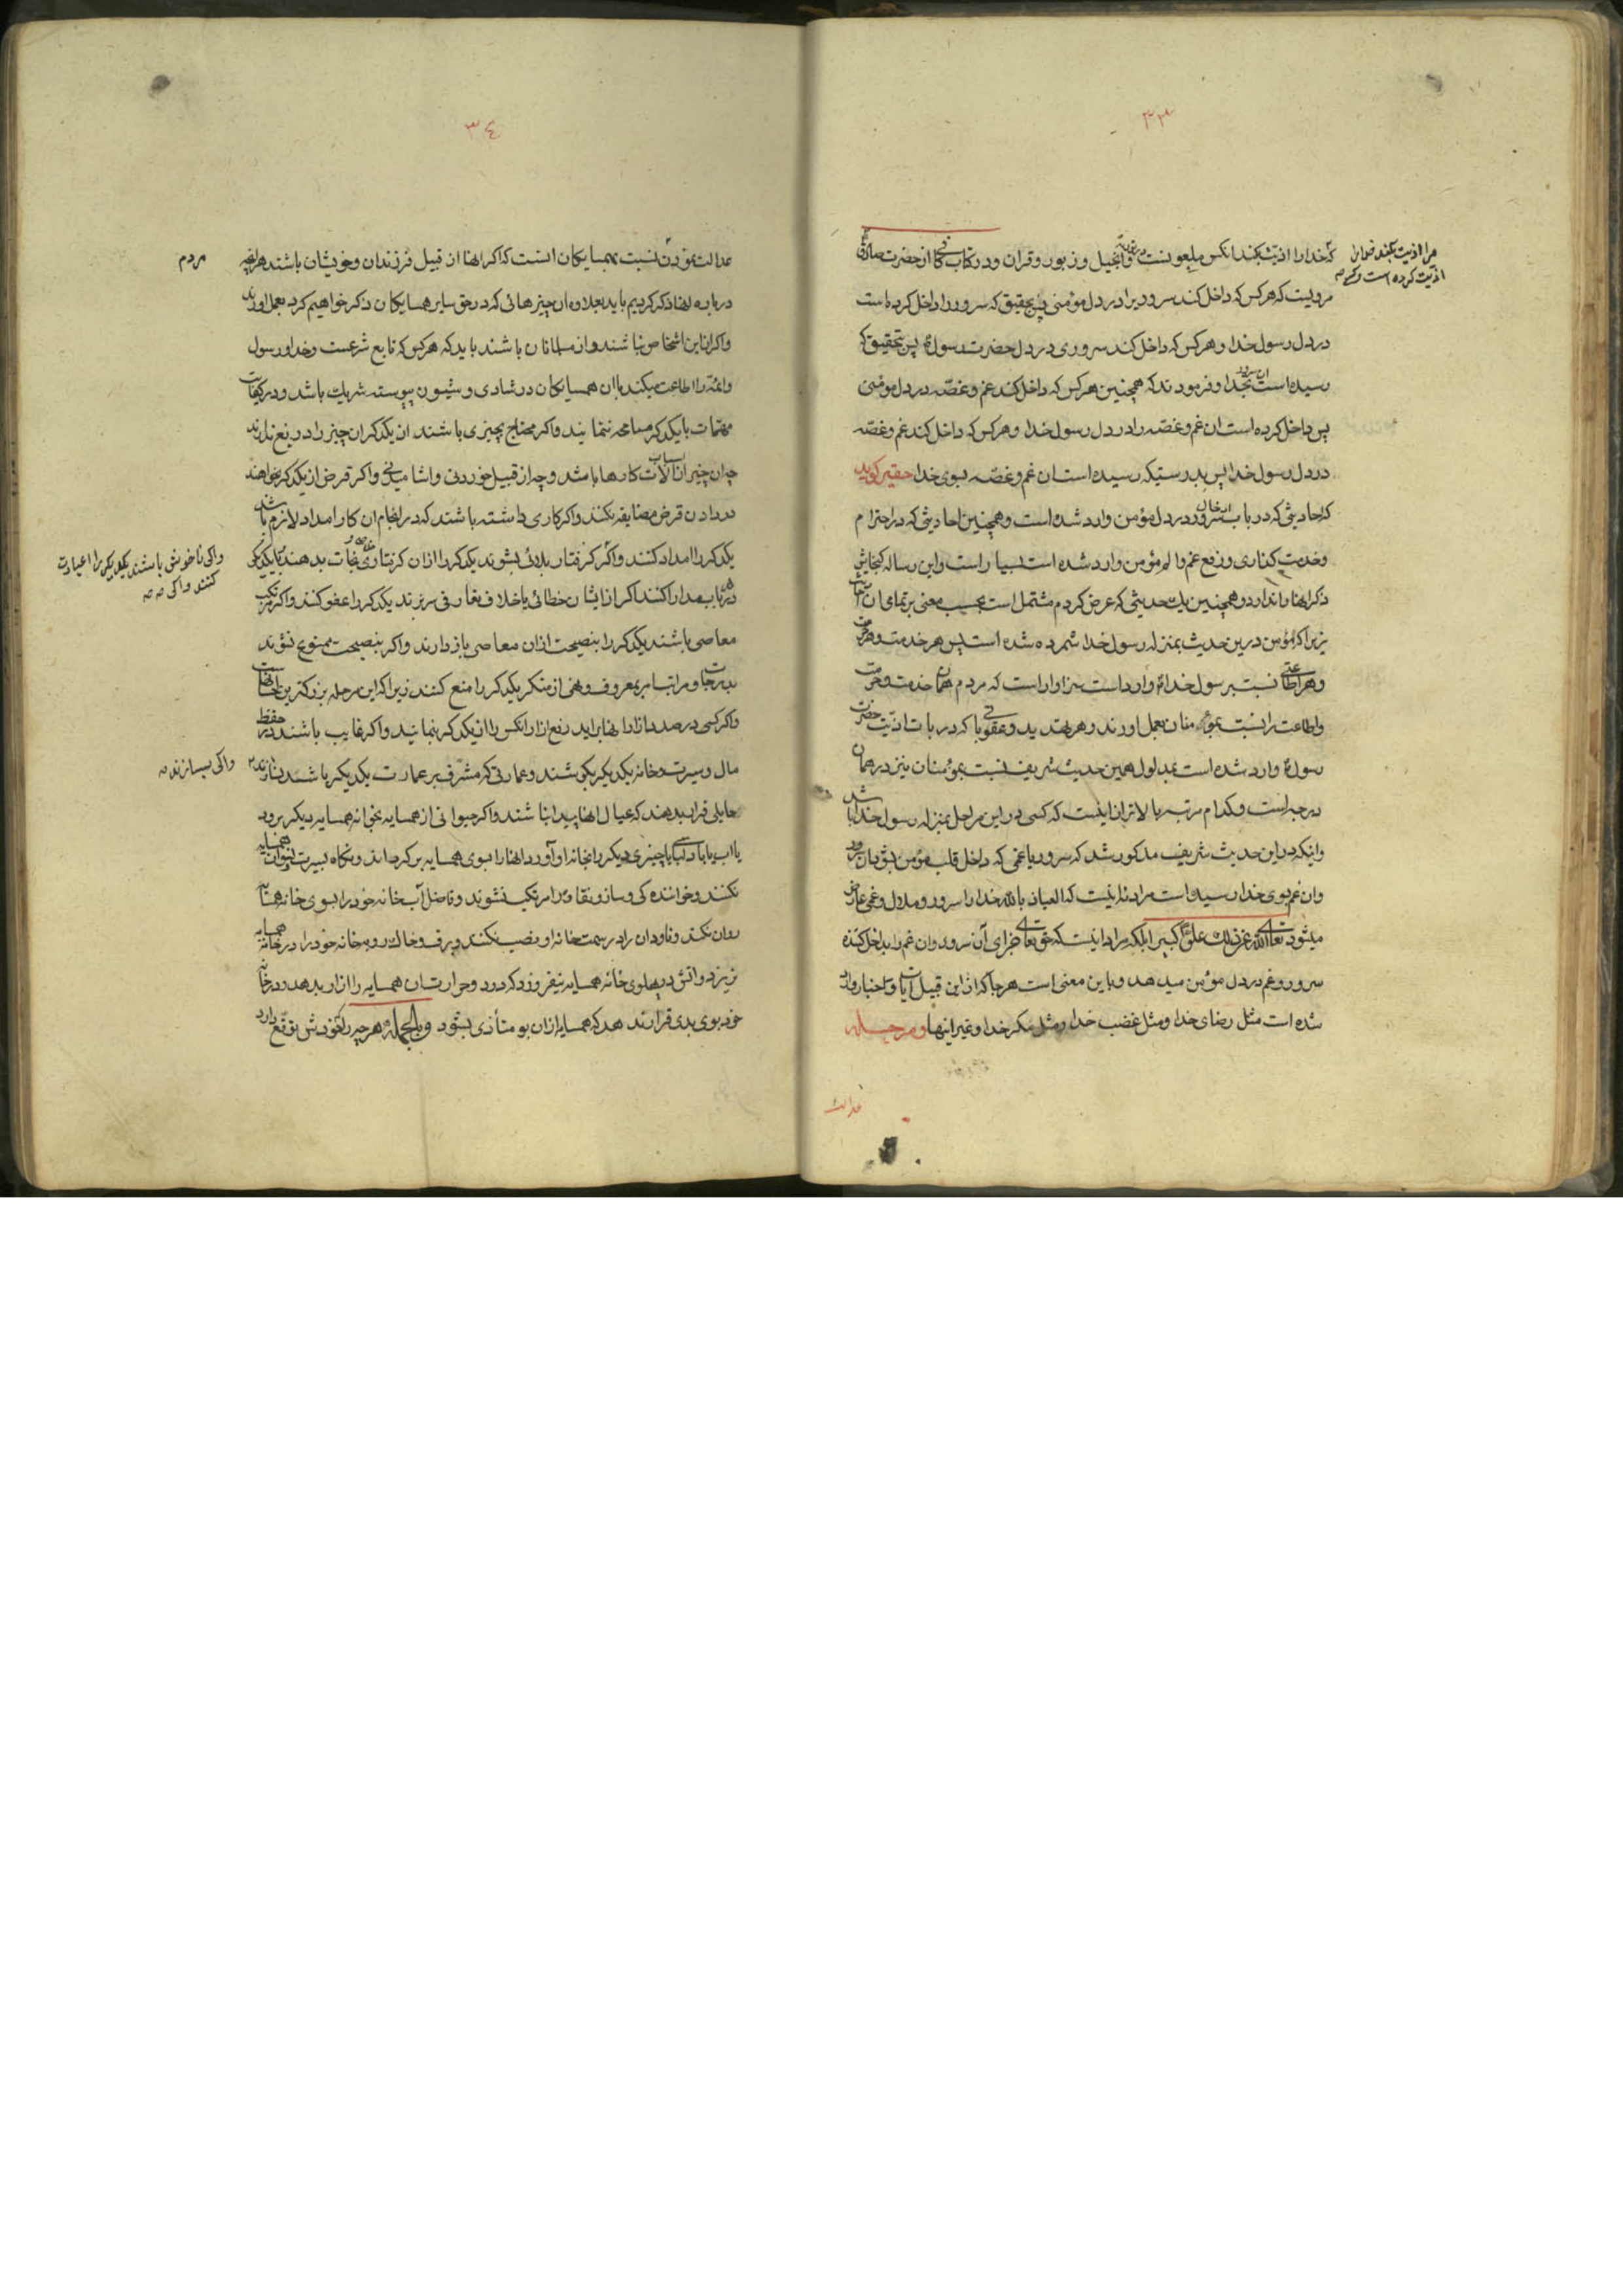 ۳۳
که خدا را اذیت بکند انکس ملعونست در توریة وانجیل و زبور و قران و در کتاب کافی از حضرت صادق
مرا اذیت بکند خدا را
اذیت کرده است وکسی
مرویست که هر کس که داخل کند سروریرا در دل مؤمنی پس بتحقیق که سرور را داخل کرده است
در دل رسول خدا و هر کس که داخل کند سروری در دل حضرت رسول پس بتحقیق که
رسیده است ان سرور بخدا و فرمودند که همچنین هر کس که داخل کند غم و غصّه در دل مومنی
پس داخل کرده است ان غم و غصّه را در دل رسول خدا و هر کس که داخل کند غم و غصّه
در دل رسول خدا پس بدرستیکه رسیده است ان غم و غصّه بسوی خدا حقیر کوید
که احادیثی که در باب ادخال سرور در دل مؤمن وارد شده است و همچنین احادیثی که در احترام
و خدمت کذاری و رفع غم و الم مؤمن وارد شده است بسیار است و این رساله کنجایش
ذکر انها را ندارد و همچنین یک حدیثی که عرض کردم مشتمل است بحسب معنی بر تمامی ان
زیرا که مؤمن درین حدیث بمنزله رسول خدا شمرده شده است پس هر خدمت و هر حرمت
و هر اطاعتی نسبت برسول خدا وارد است سزاوار است که مردم همان خدمت و حرمت
و اطاعت را نسبت بمؤمنان بعمل اورند و هر تهدید و عقوباتی که در باب اذیّت حضرت
رسول وارد شده است بمدلول همین حدیث شریف نسبت بمؤمنان نیز در همان
درجه است و کدام مرتبه بالاتر از اینست که کسی در این مراحل بمنزله رسول خدا باشد
و اینکه در این حدیث شریف مذکور شد که سرور یا غمی که داخل قلب مؤمن بشود ان سرور
و ان غم بسوی خدا رسیده است مراد نه اینست که العیاذ بالله خدا را سرور و ملال و غمی عارض
میشود تعالی الله عن ذلک علوّا کبیرا بلکه مراد اینست که حق تعالی جزای آن سرور و ان غم را بداخل کننده
سرور و غم در دل مؤمن میدهد و باین معنی است هر جا که از این قبیل آیات و اخبار وارد
شده است مثل رضای خدا و مثل غضب خدا و مثل مکر خدا و غیر اینها و مرحله
عدالت
۳۴
عدالت نمودن نسبت بهمسایکان انست که اکر انها از قبیل فرزندان و خویشان باشند هر انچه
مردم
درباره انها ذکر کردیم باید بعلاوه ان چیزهائی که در حق سایر همسایکان ذکر خواهیم کرد بعمل اورند
و اکر از این اشخاص نباشند و از مسلمانان باشند باید که هر کس که تابع شرعست و خدا و رسول
و ائمّه را اطاعت میکند با ان همسایکان در شادی و شیون پیوسته شریک باشد و در کفایت
مهمّات با یکدکر مسامحه ننمایند و اکر محتاج بچیزی باشند از یکدکر ان چیز را دریغ ندارند
چه ان چیز از اسباب آلات کارها باشد و چه از قبیل خوردنی و اشامیدنی و اکر قرض از یکدکر بخواهند
در دادن قرض مضایقه نکنند و اکر کاری داشته باشند که در انجام ان کار امداد لازم باشد
یکدکر را امداد کنند و اکر کرفتار بلائی بشوند یکدکر را از ان کرفتاری نجات بدهند با یکدیکر
واکر ناخوش باشند یکدیکر را عیادت
کنند واکر
در هر باب مدارا کنند اکر از ایشان خطائی یا خلاف تعارفی سر بزند یکدکر را عفو کنند و اکر مرتکب
معاصی باشند یکدکر را بنصیحت از ان معاصی باز دارند و اکر بنصیحت ممنوع نشوند
بدرجات و مراتب امر بمعروف و نهی از منکر یکدکر را منع کنند زیرا که این مرحله بزرکترین
و اکر کسی در صدد ازار انها براید رفع ازار انکس را از یکدکر بنمایند و اکر غایب باشند در حفظ
مال و سیرت و خانه یکدیکر بکوشند و عمارتی که مشرف بر عمارت یکدیکر باشد نسازند
واکر بسازند
حایلی قرار بدهند که عیال انها پیدا نباشند و اکر حیوانی از همسایه بخانه همسایه دیکر برود
یا اب یا باد لباسی یا چیزی دیکر را بخانه او آورد انها را بسوی همسایه برکرداند و نکاه بسیرت
نکنند و خواننده کی و ساز و نقاره را مرتکب نشوند و فاضل آب خانه خود را بسوی خانه همسایه
روان نکند و ناودان را در سمت خانه او نصب نکنند و برف و خاک روبه خانه خود را در خانه همسایه
نریزد و اتش در پهلوی خانه همسایه نیفروزد که دود و حرارت ان همسایه را ازار بدهد و در خانه
خود بوی بدی قرار ندهد که همسایه از ان بو متأذی بشود و بالجمله هر چیز را که خودش توقّع دارد